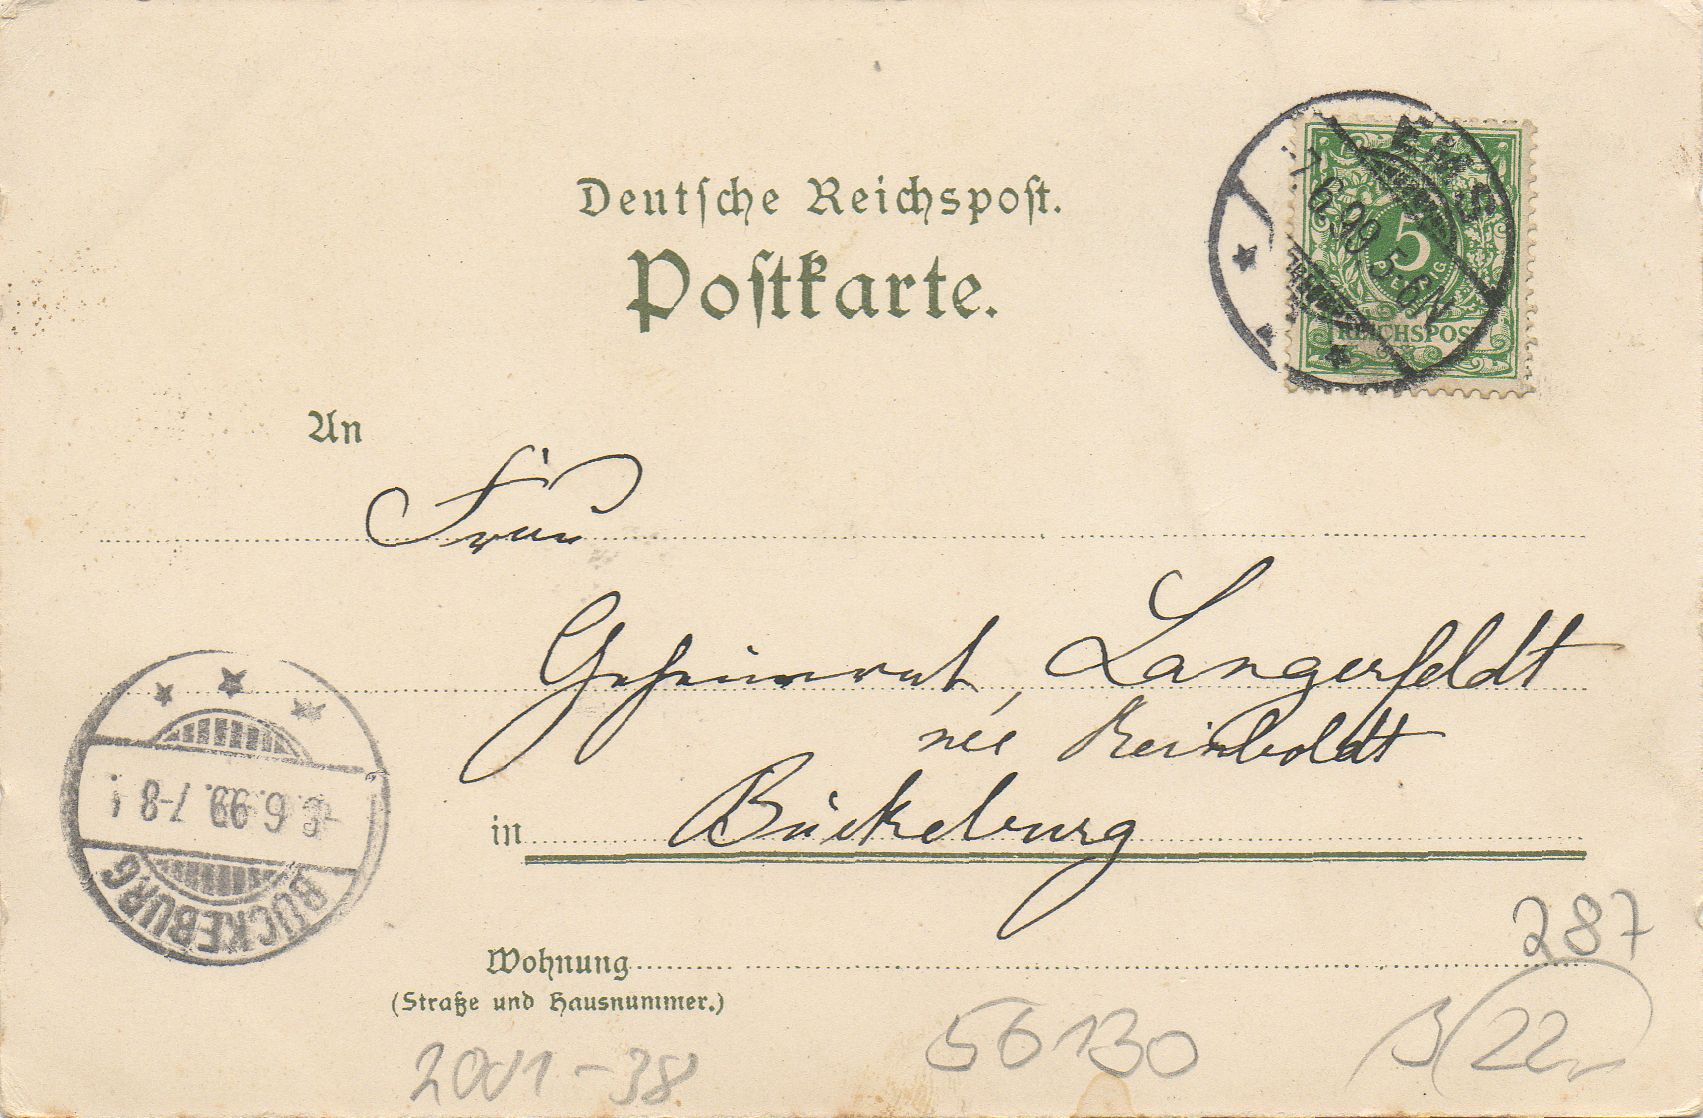 Deutsche Reichspost.
Postkarte.
EMS
7.6.99. 5-6N
5
PFENNIG
REICHSPOST
An
Frau
Geheimrat Langerfeldt
née Reinboldt
in Bückeburg
BÜCKEBURG
6.99. 7-8
Wohnung
(Straße und Hausnummer.)
287
56130
22
2001-38